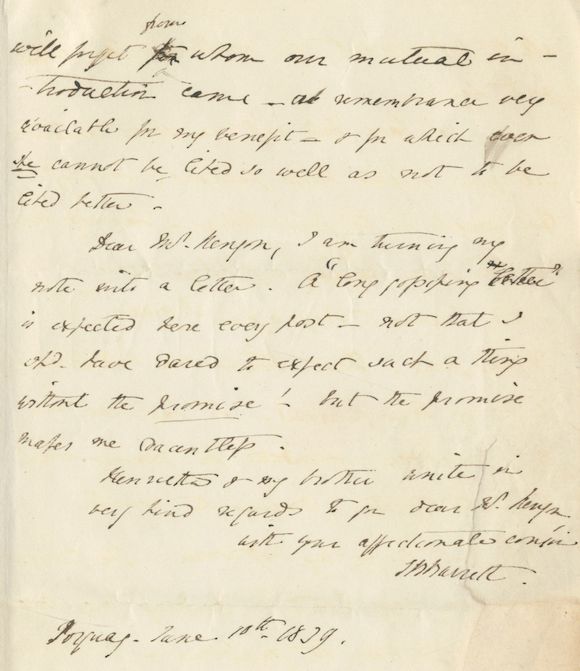 from
will forget for whom our mutual in-
-troduction came – a remembrance very
available for my benefit – & for which even
he cannot be cited so well as not to be
cited better –
Dear Mr. Kenyon, I am turning my
note into a letter. A "long gossiping letter"
is expected here every post – not that I
shd. have dared to expect such a thing
without the promise! – but the promise
makes me dauntless.
Henrietta & my brother unite in
very kind regards to you dear Mr. Kenyon
with your affectionate cousin
EBBarrett.
Torquay – June 10th. 1839.